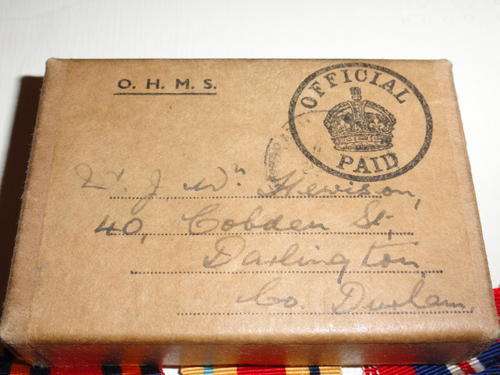 O. H. M. S.
OFFICIAL
PAID
J. Wm Hewison,
40, Cobden St,
Darlington,
Co. Durham.